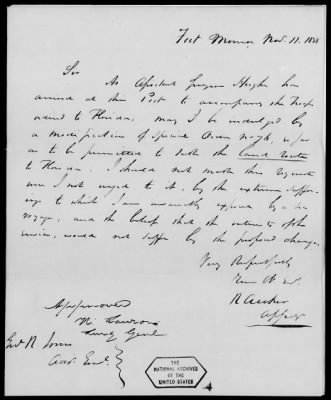 Fort Monroe Nov. 11. 1838
Sir
As Assistant Surgeon Hughes has
arrived at this Post to accompany the Troops
ordered to Florida, may I be indulged by
a modification of Special Order No. so far
as to be permitted to take the land route
to Florida. I should not make this request
were I not urged to it, by the extreme suffer-
ings to which I am invariably exposed by a sea
voyage, and the belief that the interests of the
service, would not suffer by the proposed change.
Very Respectfully
R Archer
Approved
Surg Genl
Genl R Jones
THE
NATIONAL ARCHIVES
OF THE
UNITED STATES